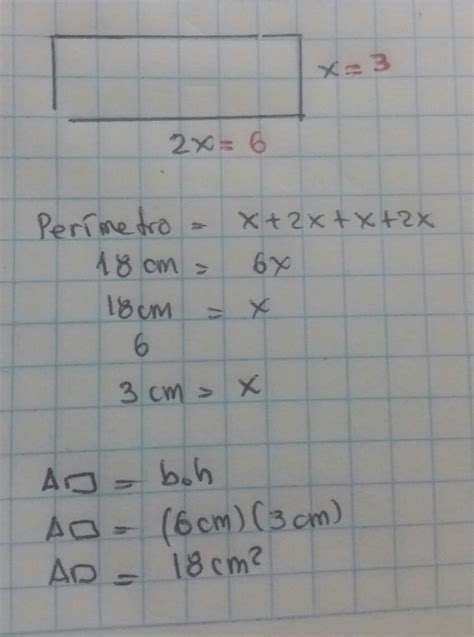 x = 3
2x = 6
Perímetro = x+2x+x+2x
18 cm = 6x
18cm = x
6
3 cm = x
A▭ = b.h
A▭ = (6cm)(3cm)
A▭ = 18cm²